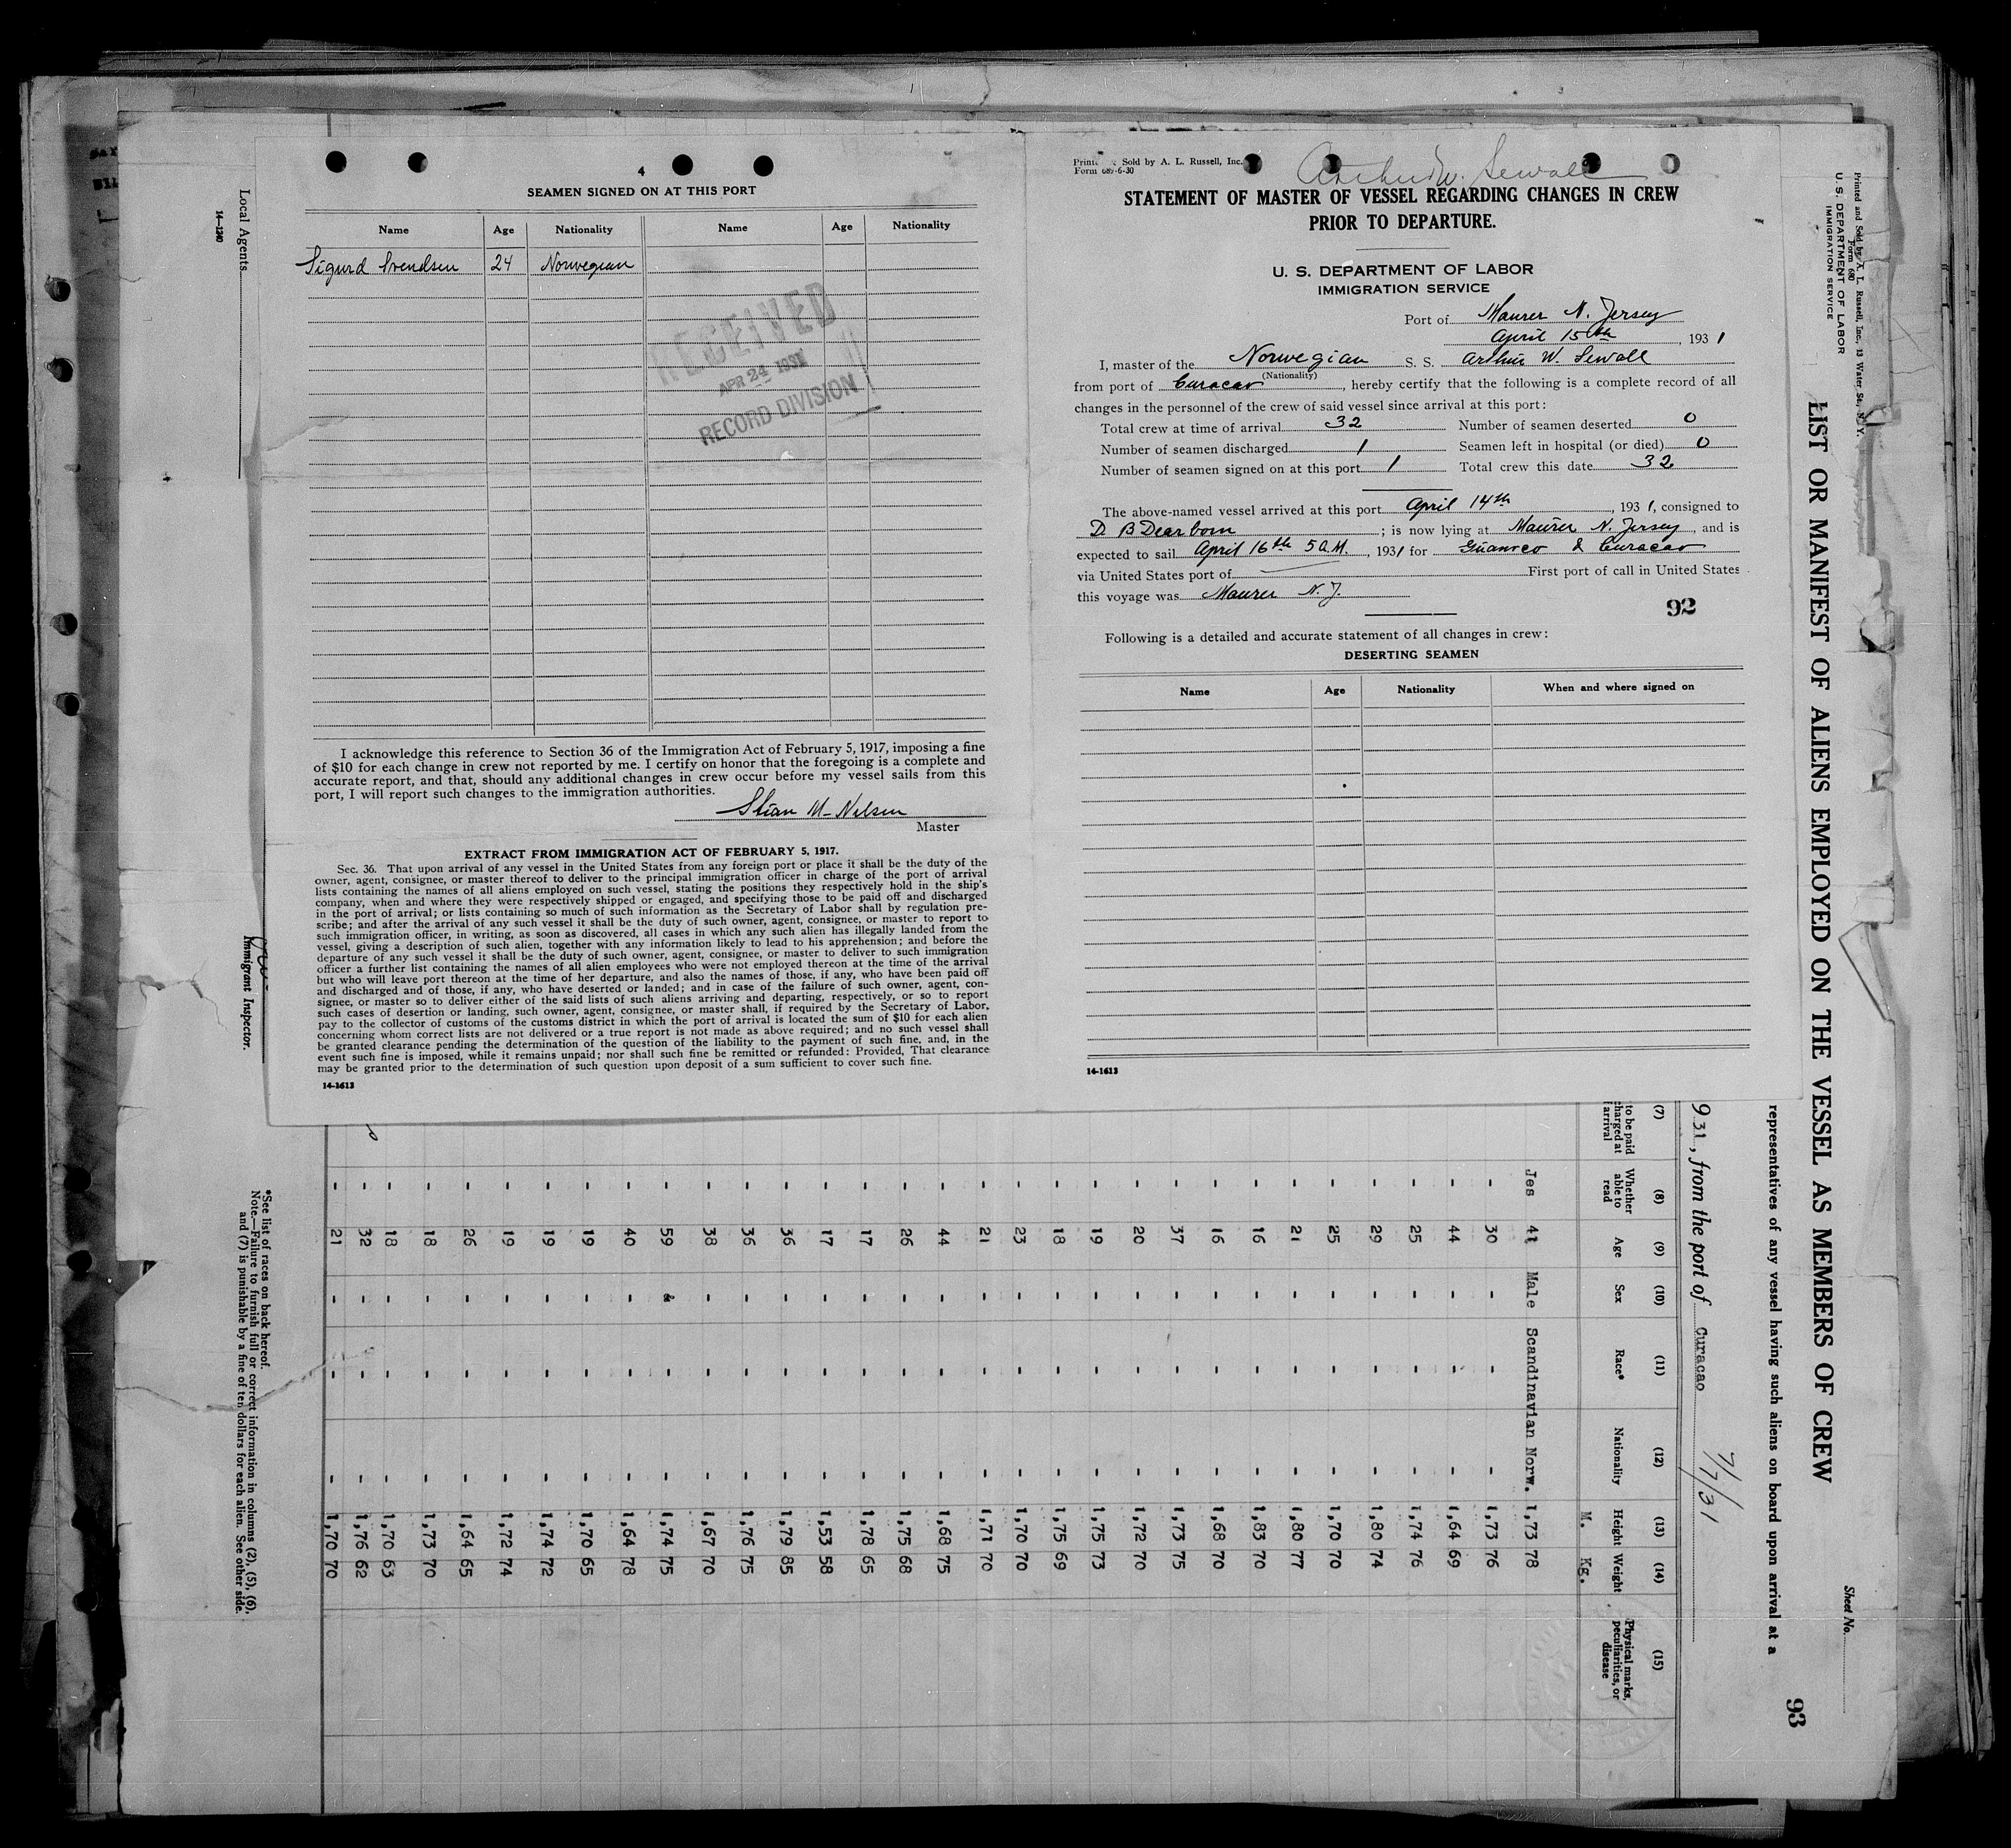 4
SEAMEN SIGNED ON AT THIS PORT
Name Age Nationality Name Age Nationality
Sigurd Svendsen 24 Norwegian
RECEIVED
APR 24 1931
RECORD DIVISION
I acknowledge this reference to Section 36 of the Immigration Act of February 5, 1917, imposing a fine
of $10 for each change in crew not reported by me. I certify on honor that the foregoing is a complete and
accurate report, and that, should any additional changes in crew occur before my vessel sails from this
port, I will report such changes to the immigration authorities.
Stian M-Nilsen
Master
EXTRACT FROM IMMIGRATION ACT OF FEBRUARY 5, 1917.
Sec. 36. That upon arrival of any vessel in the United States from any foreign port or place it shall be the duty of the
owner, agent, consignee, or master thereof to deliver to the principal immigration officer in charge of the port of arrival
lists containing the names of all aliens employed on such vessel, stating the positions they respectively hold in the ship's
company, when and where they were respectively shipped or engaged, and specifying those to be paid off and discharged
in the port of arrival; or lists containing so much of such information as the Secretary of Labor shall by regulation pre-
scribe; and after the arrival of any such vessel it shall be the duty of such owner, agent, consignee, or master to report to
such immigration officer, in writing, as soon as discovered, all cases in which any such alien has illegally landed from the
vessel, giving a description of such alien, together with any information likely to lead to his apprehension; and before the
departure of any such vessel it shall be the duty of such owner, agent, consignee, or master to deliver to such immigration
officer a further list containing the names of all alien employees who were not employed thereon at the time of the arrival
but who will leave port thereon at the time of her departure, and also the names of those, if any, who have been paid off
and discharged and of those, if any, who have deserted or landed; and in case of the failure of such owner, agent, con-
signee, or master so to deliver either of the said lists of such aliens arriving and departing, respectively, or so to report
such cases of desertion or landing, such owner, agent, consignee, or master shall, if required by the Secretary of Labor,
pay to the collector of customs of the customs district in which the port of arrival is located the sum of $10 for each alien
concerning whom correct lists are not delivered or a true report is not made as above required; and no such vessel shall
be granted clearance pending the determination of the question of the liability to the payment of such fine, and, in the
event such fine is imposed, while it remains unpaid; nor shall such fine be remitted or refunded: Provided, That clearance
may be granted prior to the determination of such question upon deposit of a sum sufficient to cover such fine.
14-1613
Sold by A. L. Russell, Inc.
Form 689-6-30
Arthur W. Sewall
STATEMENT OF MASTER OF VESSEL REGARDING CHANGES IN CREW
PRIOR TO DEPARTURE.
U. S. DEPARTMENT OF LABOR
IMMIGRATION SERVICE
Port of Maurer N. Jersey
April 15th, 1931
I, master of the Norwegian S. S. Arthur W. Sewall
(Nationality)
from port of Curacao, hereby certify that the following is a complete record of all
changes in the personnel of the crew of said vessel since arrival at this port:
Total crew at time of arrival 32 Number of seamen deserted 0
Number of seamen discharged 1 Seamen left in hospital (or died) 0
Number of seamen signed on at this port 1 Total crew this date 32
The above-named vessel arrived at this port April 14th, 1931, consigned to
D. B Dearborn; is now lying at Maurer N. Jersey, and is
expected to sail April 16th 5 A.M., 1931 for Guanico & Curacao
via United States port of First port of call in United States
this voyage was Maurer N. J.
92
Following is a detailed and accurate statement of all changes in crew:
DESERTING SEAMEN
Name Age Nationality When and where signed on
14-1613
Printed and Sold by A. L. Russell, Inc., 13 Water St., N. Y.
Form 680
U. S. DEPARTMENT OF LABOR
IMMIGRATION SERVICE
Sheet No.
LIST OR MANIFEST OF ALIENS EMPLOYED ON THE VESSEL AS MEMBERS OF CREW
93
representatives of any vessel having such aliens on board upon arrival at a
931, from the port of Curacao
7/7/31
(7) (8) (9) (10) (11) (12) (13) (14) (15)
to be paid
charged at
arrival
Whether
able to
read
Age Sex Race* Nationality Height Weight
Physical marks,
peculiarities, or
disease
M. Kg.
Jes 41 Male Scandinavian Norw. 1,73 78
- 30 - - - 1,73 76
- 44 - - - 1,64 69
- 25 - - - 1,74 76
- 29 - - - 1,80 74
- 25 - - - 1,70 70
- 21 - - - 1,80 77
- 16 - - - 1,83 70
- 16 - - - 1,68 70
- 37 - - - 1,73 75
- 20 - - - 1,72 70
- 19 - - - 1,75 73
- 18 - - - 1,75 69
- 23 - - - 1,70 70
- 21 - - - 1,71 70
- 44 - - - 1,68 75
- 26 - - - 1,75 68
- 17 - - - 1,78 65
- 17 - - - 1,53 58
- 36 - - - 1,79 85
- 36 - - - 1,76 75
- 38 - - - 1,67 70
- 59 - - - 1,74 75
- 40 - - - 1,64 78
- 19 - - - 1,70 65
- 19 - - - 1,74 72
- 19 - - - 1,72 74
- 26 - - - 1,64 65
- 18 - - - 1,73 70
- 18 - - - 1,70 63
- 32 - - - 1,76 62
- 21 - - - 1,70 70
*See list of races on back hereof.
Note.—Failure to furnish full or correct information in columns (2), (5), (6),
and (7) is punishable by a fine of ten dollars for each alien. See other side.
Local Agents
Immigrant Inspector.
14-1240